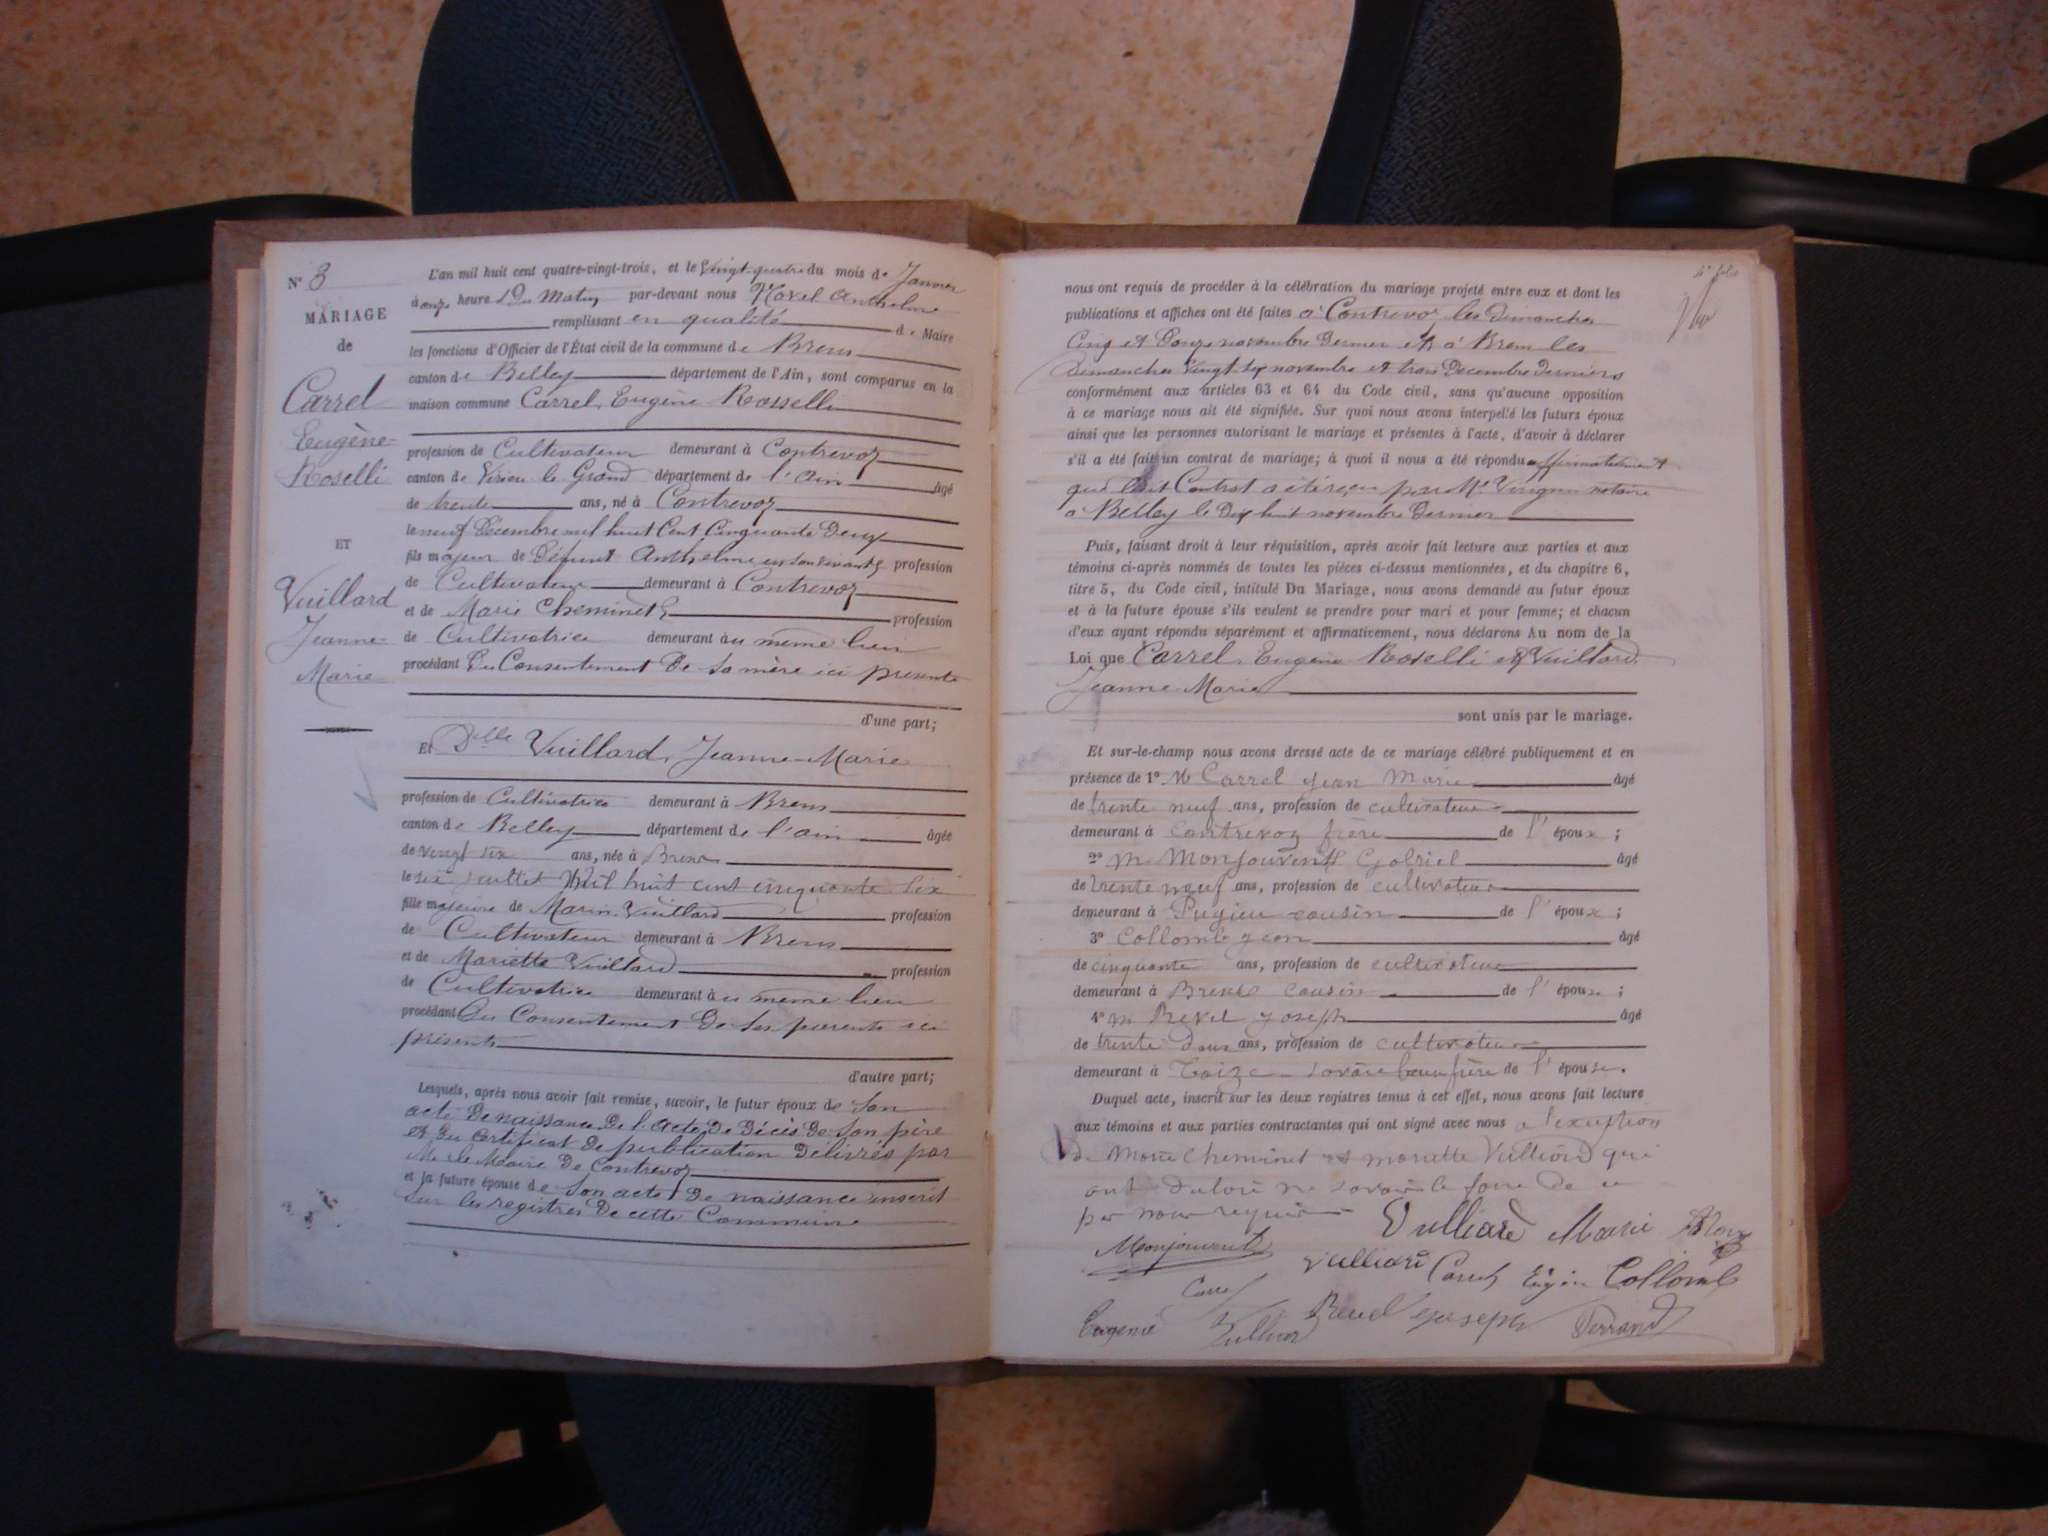 N° 3
MARIAGE
de
Carrel
Eugène
Roselli
ET
Vuillard
Jeanne
Marie
L'an mil huit cent quatre-vingt-trois, et le vingt-quatre du mois de Janvier
à onze heures Du Matin par-devant nous Anthelme
remplissant en qualité de Maire
les fonctions d'Officier de l'État civil de la commune de Brens
canton de Belley département de l'Ain, sont comparus en la
maison commune Carrel Eugène Rosselli
profession de Cultivateur demeurant à Contrevoz
canton de Virieu le Grand département de l'Ain âgé
de trente ans, né à Contrevoz
le neuf Décembre mil huit Cent Cinquante Deux
fils majeur de Défunt Anthelme en son vivant profession
de Cultivateur demeurant à Contrevoz
et de Marie Cheminet profession
de Cultivatrice demeurant au même lieu
procédant Du Consentement De sa mère ici présente
d'une part;
Et Delle Vuillard, Jeanne-Marie
profession de Cultivatrice demeurant à Brens
canton de Belley département de l'ain âgée
de vingt six ans, née à Brens
le six juillet Mil huit cent cinquante six
fille majeure de Marin Vuillard profession
de Cultivateur demeurant à Brens
et de Mariette Vuillard profession
de Cultivatrice demeurant au même lieu
procédant Du Consentement De ses parents ici
présents
d'autre part;
Lesquels, après nous avoir fait remise, savoir, le futur époux de son
acte De naissance De l'Acte De Décès De son père
et Du certificat De publication Délivrés par
Mr le Maire De Contrevoz
et la future épouse de son acte De naissance inscrit
sur les registres De cette Commune
nous ont requis de procéder à la célébration du mariage projeté entre eux et dont les
publications et affiches ont été faites à Contrevoz les Dimanches
Cinq et Douze novembre Dernier et à Brens les
Dimanches Vingt six novembre et trois Décembre Derniers
conformément aux articles 63 et 64 du Code civil, sans qu'aucune opposition
à ce mariage nous ait été signifiée. Sur quoi nous avons interpellé les futurs époux
ainsi que les personnes autorisant le mariage et présentes à l'acte, d'avoir à déclarer
s'il a été fait un contrat de mariage; à quoi il nous a été répondu affirmativement
que Contrat a été reçu par Me notaire
à Belley le Dix huit novembre Dernier
Puis, faisant droit à leur réquisition, après avoir fait lecture aux parties et aux
témoins ci-après nommés de toutes les pièces ci-dessus mentionnées, et du chapitre 6,
titre 5, du Code civil, intitulé Du Mariage, nous avons demandé au futur époux
et à la future épouse s'ils veulent se prendre pour mari et pour femme; et chacun
d'eux ayant répondu séparément et affirmativement, nous déclarons Au nom de la
Loi que Carrel Eugène Roselli et Vuillard
Jeanne Marie
sont unis par le mariage.
Et sur-le-champ nous avons dressé acte de ce mariage célébré publiquement et en
présence de 1° M Carrel jean Marie âgé
de trente neuf ans, profession de cultivateur
demeurant à contrevoz frère de l'époux;
2° M Monjouvent Gabriel âgé
de trente neuf ans, profession de cultivateur
demeurant à Pugieu cousin de l'époux;
3° Collomb jean âgé
de cinquante ans, profession de cultivateur
demeurant à Brens cousin de l'épouse;
4° M Revel joseph âgé
de trente deux ans, profession de cultivateur
demeurant à savoie beau frère de l'épouse.
Duquel acte, inscrit sur les deux registres tenus à cet effet, nous avons fait lecture
aux témoins et aux parties contractantes qui ont signé avec nous à l'exception
de Marie Cheminet et mariette Vulliard qui
ont déclaré ne savoir le faire de ce
par nous requis
Vulliard Marie
Monjouvent Vulliard Carrel Eugène Collomb
Carrel
Eugenie Revel joseph Perrand